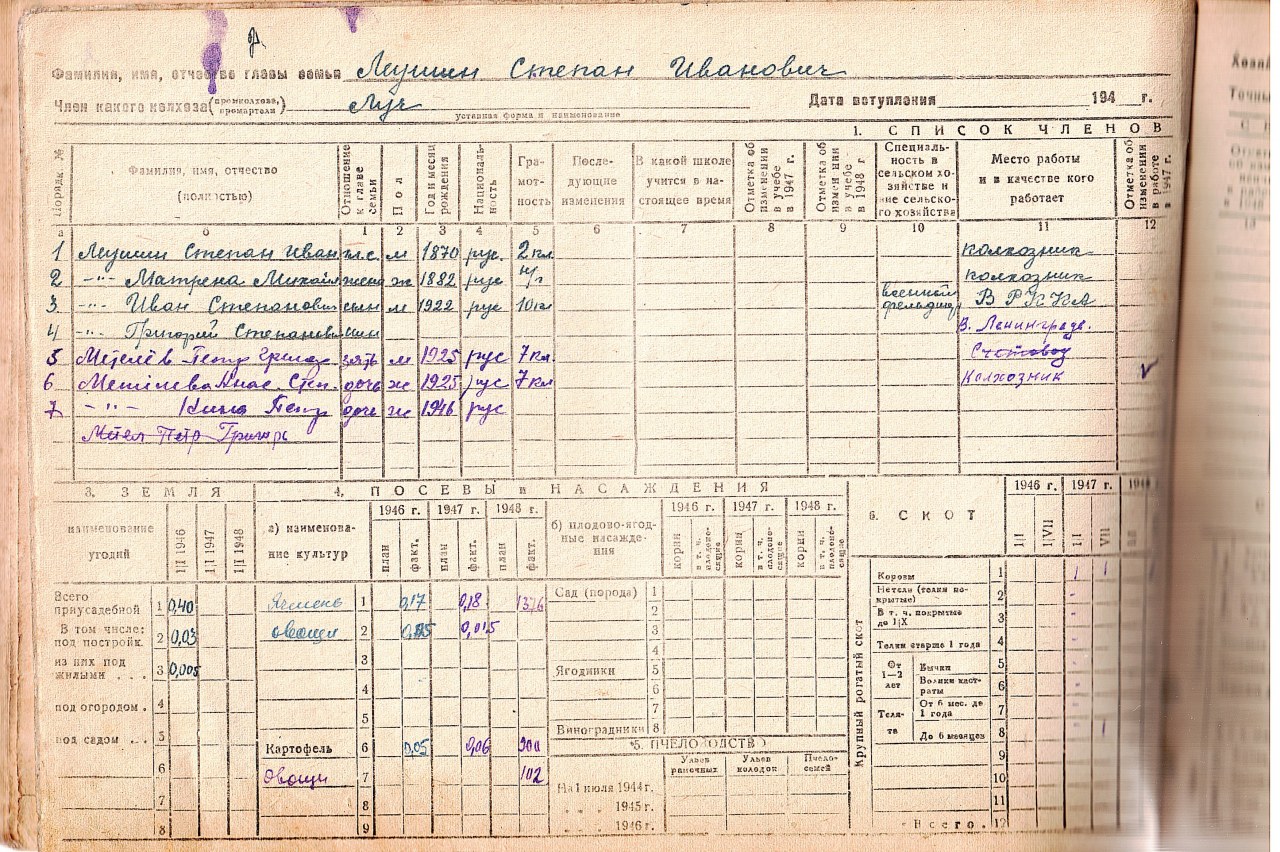 Фамилия, имя, отчество главы семьи Леушин Степан Иванович
Член какого колхоза (промколхоза, промартели) Луч Дата вступления 194 г.
уставная форма и наименование
1. СПИСОК ЧЛЕНОВ
Порядк. № Фамилия, имя, отчество (полностью) Отношение к главе семьи Пол Год и месяц рождения Национальность Грамотность Последующие изменения В какой школе учится в настоящее время Отметка об изменении в учебе в 1947 г. Отметка об изменении в учебе в 1948 г. Специальность в сельском хозяйстве и вне сельского хозяйства Место работы и в качестве кого работает Отметка об изменении в работе в 1947 г.
а б 1 2 3 4 5 6 7 8 9 10 11 12
1 Леушин Степан Иван г.с. м 1870 рус. 2 кл колхозник
2 -"- Матрена Михайл жена ж 1882 рус н/г колхозник
3. -"- Иван Степанович сын м 1922 рус 10 кл военный фельдшер В РККА
4 -"- Григорий Степанович сын В. Ленинграде.
5 Метелёв Петр Григор зять м 1925 рус 7 кл Счетовод
6 Метелева Анас. Степ. дочь ж 1925 рус 7 кл Колхозник
7 -"- Петр дочь ж 1946 рус
Метел Петр Григорь
3. ЗЕМЛЯ
наименование угодий 1|I 1946 1|I 1947 1|I 1948
Всего приусадебной 1 0,40
В том числе: под постройк. 2 0,03
из них под жилыми . . . 3 0,005
под огородом . 4
под садом . . . 5
6
7
8
4. ПОСЕВЫ и НАСАЖДЕНИЯ
а) наименование культур 1946 г. 1947 г. 1948 г.
план факт. план факт. план факт.
Ячмень 1 0,17 0,18 1376
овощи 2 0,015
3
4
5
Картофель 6 0,05 0,06 900
Овощи 7 102
8
9
б) плодово-ягодные насаждения 1946 г. 1947 г. 1948 г.
корни в т. ч. плодоносящие корни в т. ч. плодоносящие корни в т. ч. плодоносящие
Сад (порода) 1
2
3
4
Ягодники 5
6
7
Виноградники 8
5. ПЧЕЛОВОДСТВО
Ульев рамочных Ульев колодок Пчелосемей
На 1 июля 1944 г.
" " 1945 г.
" " 1946 г.
6. СКОТ
1946 г. 1947 г.
1|I 1|VII 1|I VII
Крупный рогатый скот
Коровы 1 1 1
Нетели (телки покрытые) 2 -
В т. ч. покрытые до 1|X 3 -
Телки старше 1 года 4 -
От 1—2 лет Бычки 5 -
Волики кастраты 6 -
Телята От 6 мес. до 1 года 7 -
До 6 месяцев 8 - 1
9
10
11
Всего. 12